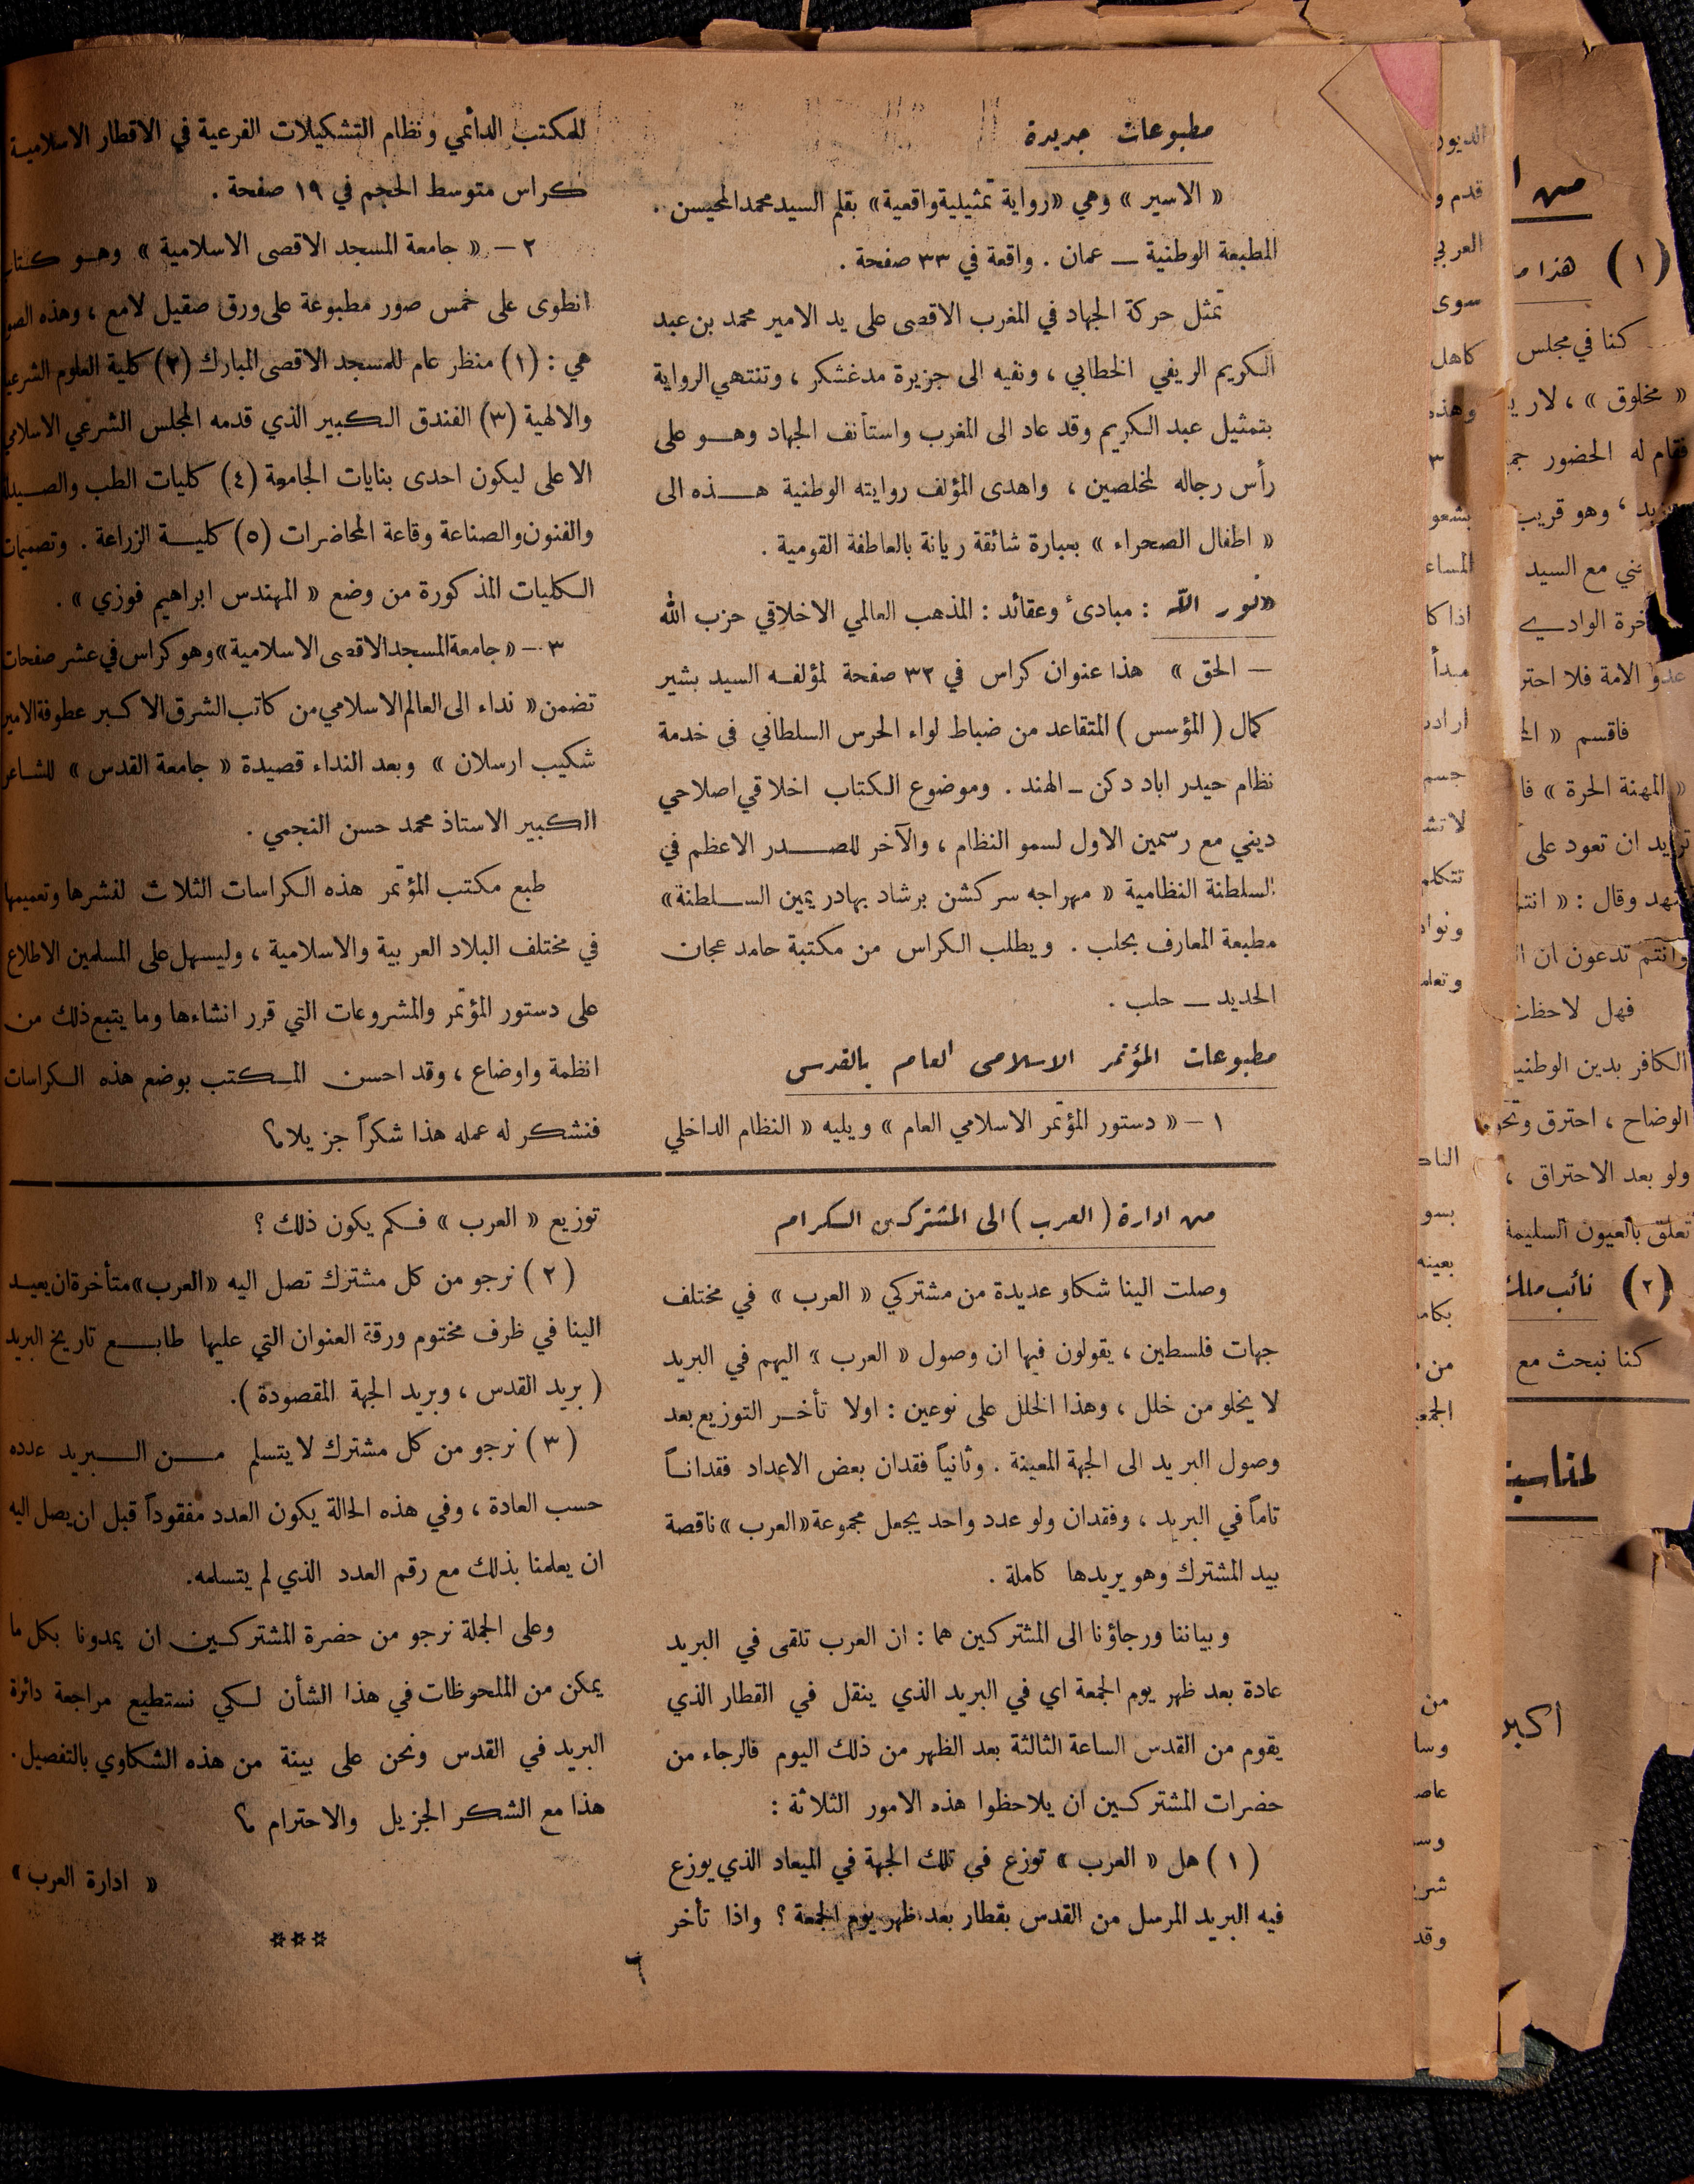 مطبوعات جديدة
« الاسير » وهي «رواية تمثيلية واقعية» بقلم السيد محمد المحيسن .
المطبعة الوطنية — عمان . واقعة في ٣٣ صفحة .
تمثل حركة الجهاد في المغرب الاقصى على يد الامير محمد بن عبد
الكريم الريفي الخطابي ، ونفيه الى جزيرة مدغشكر ، وتنتهي الرواية
بتمثيل عبد الكريم وقد عاد الى المغرب واستأنف الجهاد وهو على
رأس رجاله لمخلصين ، واهدى المؤلف روايته الوطنية هذه الى
« اطفال الصحراء » بعبارة شائقة ريانة بالعاطفة القومية .
«نور الله : مبادئ وعقائد : المذهب العالمي الاخلاقي حزب الله
— الحق » هذا عنوان كراس في ٣٢ صفحة لمؤلفه السيد بشير
كمال ( المؤسس ) المتقاعد من ضباط لواء الحرس السلطاني في خدمة
نظام حيدر اباد دكن ــ الهند . وموضوع الكتاب اخلاقي اصلاحي
ديني مع رسمين الاول لسمو النظام ، والآخر للصدر الاعظم في
السلطنة النظامية « مهراجه سركشن برشاد بهادر يمين السلطنة»
مطبعة المعارف بحلب . ويطلب الكراس من مكتبة حامد عجان
الحديد — حلب .
مطبوعات المؤتمر الاسلامى العام بالقدس
١ – « دستور المؤتمر الاسلامي العام » ويليه « النظام الداخلي
للمكتب الدائمي ونظام التشكيلات الفرعية في الاقطار الاسلامية
كراس متوسط الحجم في ١٩ صفحة .
٢ – « جامعة المسجد الاقصى الاسلامية » وهو كتاب
انطوى على خمس صور مطبوعة على ورق صقيل لامع ، وهذه الصو
هي : (١) منظر عام للمسجد الاقصى المبارك (٢) كلية العلوم الشرعية
والالهية (٣) الفندق الكبير الذي قدمه المجلس الشرعي الاسلامي
الاعلى ليكون احدى بنايات الجامعة (٤) كليات الطب والصيدلة
والفنون والصناعة وقاعة المحاضرات (٥) كلية الزراعة . وتصميمات
الكليات المذكورة من وضع « المهندس ابراهيم فوزي » .
٣ – « جامعة المسجد الاقصى الاسلامية » وهو كراس في عشر صفحات
تضمن « نداء الى العالم الاسلامي من كاتب الشرق الاكبر عطوفة الامير
شكيب ارسلان » وبعد النداء قصيدة « جامعة القدس » للشاعر
الكبير الاستاذ محمد حسن النجمي .
طبع مكتب المؤتمر هذه الكراسات الثلاث لنشرها وتعميمها
في مختلف البلاد العربية والاسلامية ، وليسهل على المسلمين الاطلاع
على دستور المؤتمر والمشروعات التي قرر انشاءها وما يتبع ذلك من
انظمة واوضاع ، وقد احسن المكتب بوضع هذه الكراسات
فنشكر له عمله هذا شكراً جزيلا ؟
من ادارة ( العرب ) الى المشتركين الكرام
وصلت الينا شكاو عديدة من مشتركي « العرب » في مختلف
جهات فلسطين ، يقولون فيها ان وصول « العرب » اليهم في البريد
لا يخلو من خلل ، وهذا الخلل على نوعين : اولا تأخر التوزيع بعد
وصول البريد الى الجهة المعينة . وثانياً فقدان بعض الاعداد فقداناً
تاماً في البريد ، وفقدان ولو عدد واحد يجعل مجموعة «العرب» ناقصة
بيد المشترك وهو يريدها كاملة .
وبياننا ورجاؤنا الى المشتركين هما : ان العرب تلقى في البريد
عادة بعد ظهر يوم الجمعة اي في البريد الذي ينقل في القطار الذي
يقوم من القدس الساعة الثالثة بعد الظهر من ذلك اليوم فالرجاء من
حضرات المشتركين ان يلاحظوا هذه الامور الثلاثة :
(١) هل « العرب » توزع في تلك الجهة في الميعاد الذي يوزع
فيه البريد المرسل من القدس بقطار بعد ظهر يوم الجمعة ؟ واذا تأخر
توزيع « العرب » فكم يكون ذلك ؟
(٢) نرجو من كل مشترك تصل اليه «العرب» متأخرة ان يعيد
الينا في ظرف مختوم ورقة العنوان التي عليها طابع تاريخ البريد
( بريد القدس ، وبريد الجهة المقصودة ).
(٣) نرجو من كل مشترك لا يتسلم من البريد عدده
حسب العادة ، وفي هذه الحالة يكون العدد مفقوداً قبل ان يصل اليه
ان يعلمنا بذلك مع رقم العدد الذي لم يتسلمه.
وعلى الجملة نرجو من حضرة المشتركين ان يمدونا بكل ما
يمكن من الملحوظات في هذا الشأن لكي نستطيع مراجعة دائرة
البريد في القدس ونحن على بينة من هذه الشكاوي بالتفصيل .
هذا مع الشكر الجزيل والاحترام ؟
« ادارة العرب »
***
٦